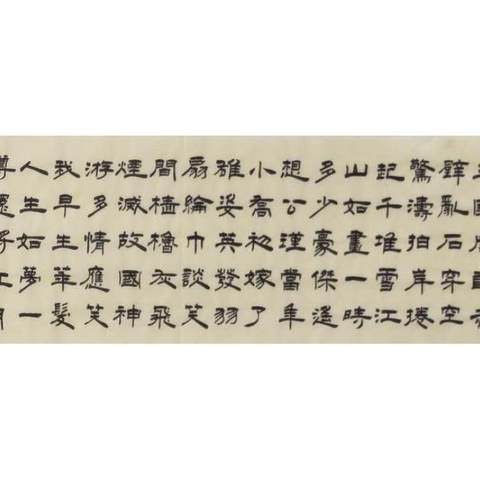 壁亂石穿空
驚濤拍岸捲
起千堆雪江
山如畫一時
多少豪傑遙
想公瑾當年
小喬初嫁了
雄姿英發羽
扇綸巾談笑
間檣櫓灰飛
煙滅故國神
游多情應笑
我早生華髮
人生如夢一
尊還江月